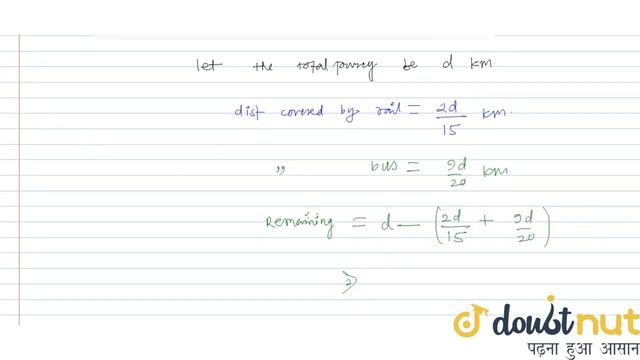 let the total jourey be d km
dist covered by rail = 2d/15 km.
" bus = 9d/20 km
Remaining = d - (2d/15 + 9d/20)
⇒
doubtnut
पढ़ना हुआ आसान